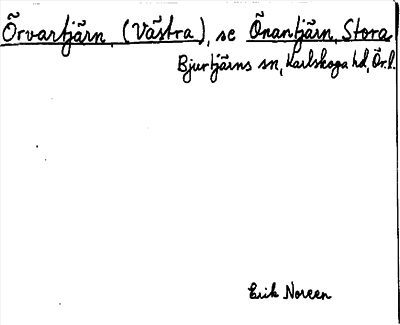 Örvartjärn, (Västra), se Önantjärn, Stora
Bjurtjärns sn, Karlskoga hd, Ör. l.
Erik Noreen